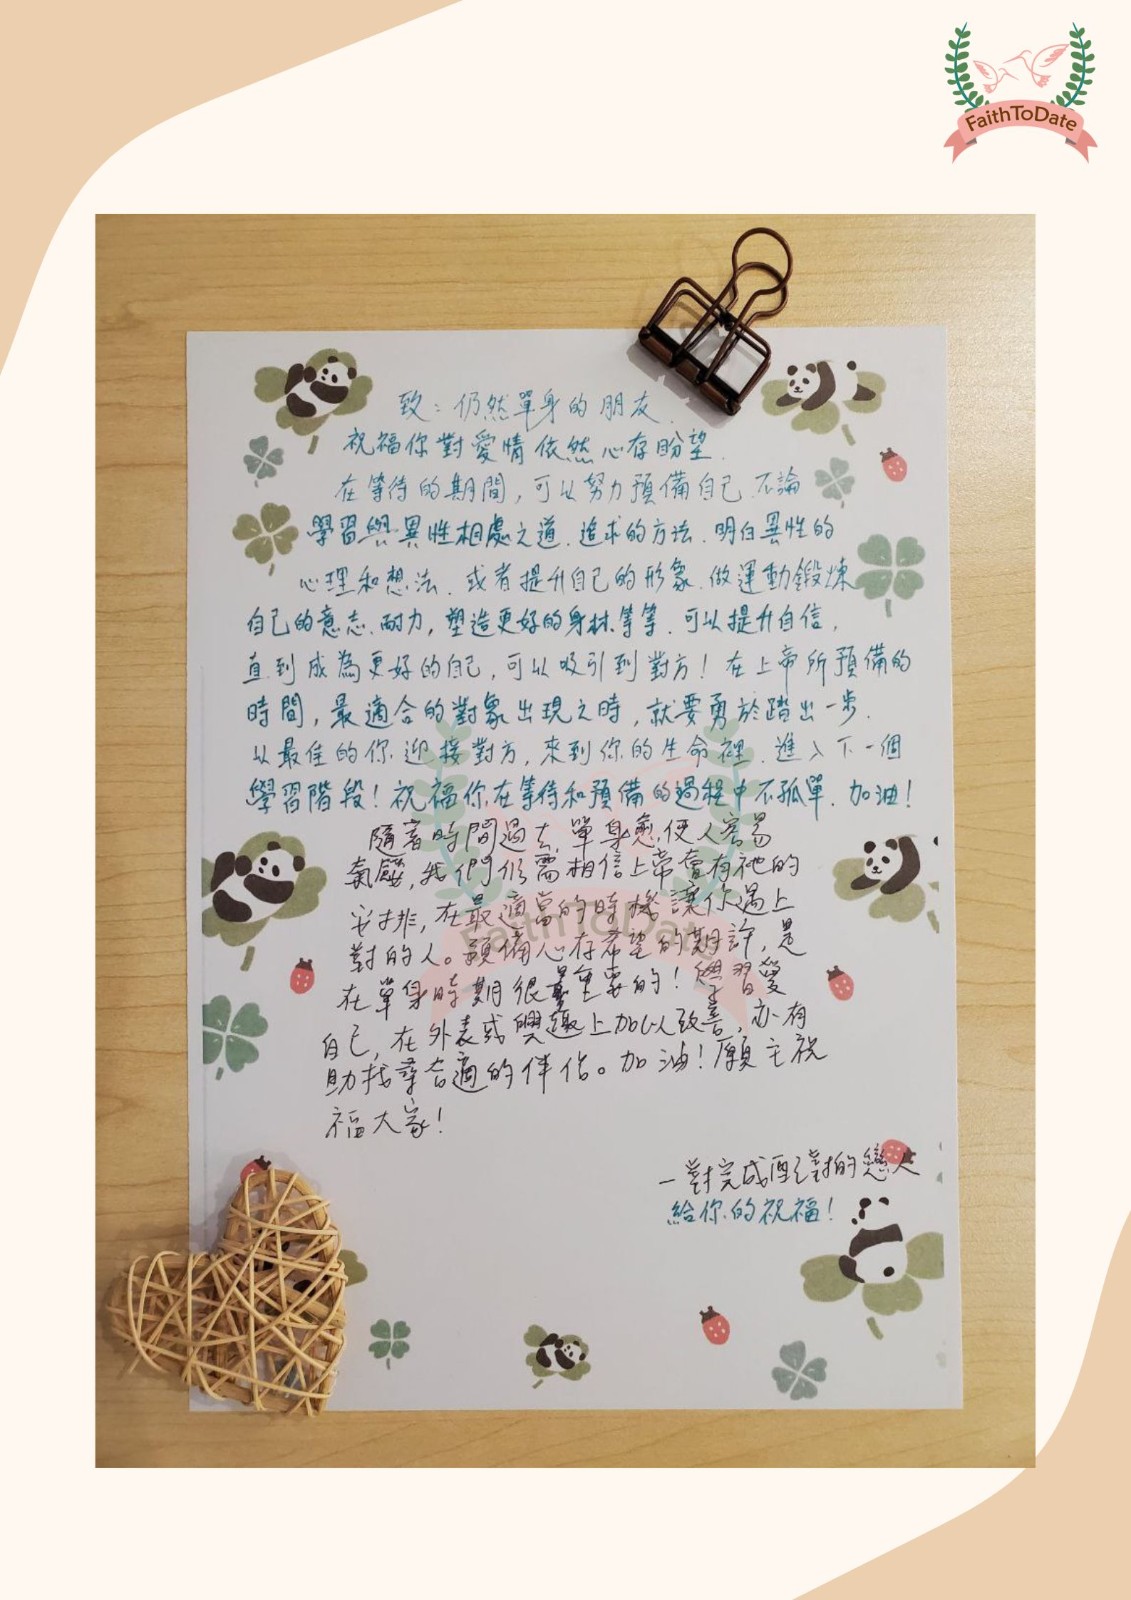 FaithToDate
致：仍然單身的朋友.
祝福你對愛情依然心存盼望.
在等待的期間，可以努力預備自己.不論
學習與異性相處之道.追求的方法.明白異性的
心理和想法.或者提升自己的形象.做運動鍛煉
自己的意志.耐力，塑造更好的身材.等等.可以提升自信，
直到成為更好的自己，可以吸引到對方！在上帝所預備的
時間，最適合的對象出現之時，就要勇於踏出一步.
以最佳的你迎接對方，來到你的生命裡.進入下一個
學習階段！祝福你在等待和預備的過程中不孤單.加油！
隨著時間過去，單身愈，使人容易
氣餒，我們仍需相信上帝會有祂的
安排，在最適當的時機讓你遇上
對的人。預備心存希望的期許，是
在單身時期很重要的！學習愛
自己，在外表或興趣上加以改善，亦有
助找尋合適的伴侶。加油！願主祝
福大家！
FaithToDate
一對完成配對的戀人
給你的祝福！